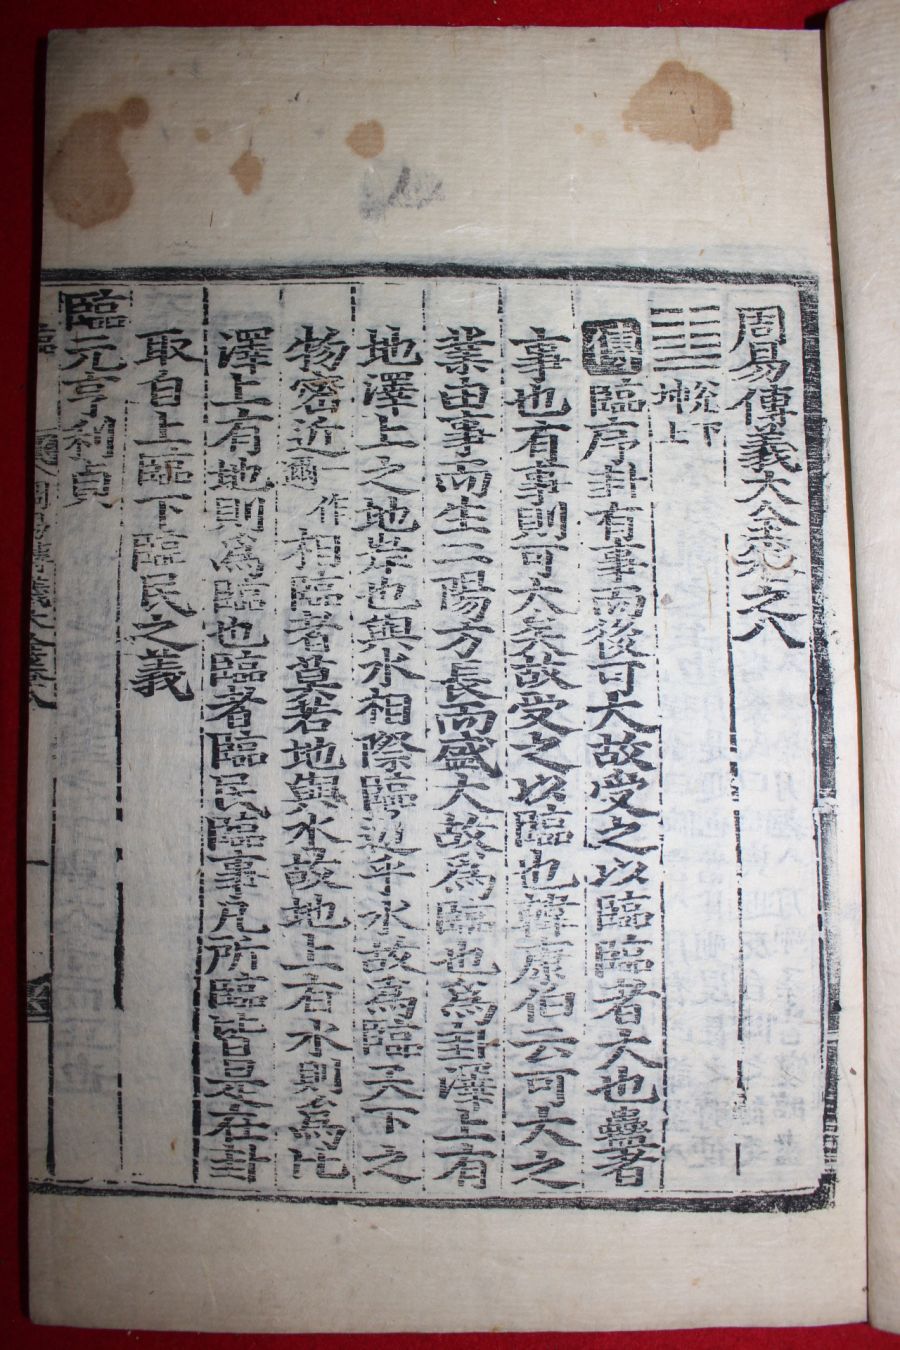 周易傳義大全卷之八
䷒ 兌下坤上
傳臨序卦有事而後可大故受之以臨臨者大也蠱者
事也有事則可大矣故受之以臨也韓康伯云可大之
業由事而生二陽方長而盛大故爲臨也爲卦澤上有
地澤上之地岸也與水相際臨近乎水故爲臨天下之
物密近一作邇相臨者莫若地與水故地上有水則爲比
澤上有地則爲臨也臨者臨民臨事凡所臨皆是在卦
取自上臨下臨民之義
臨元亨利貞